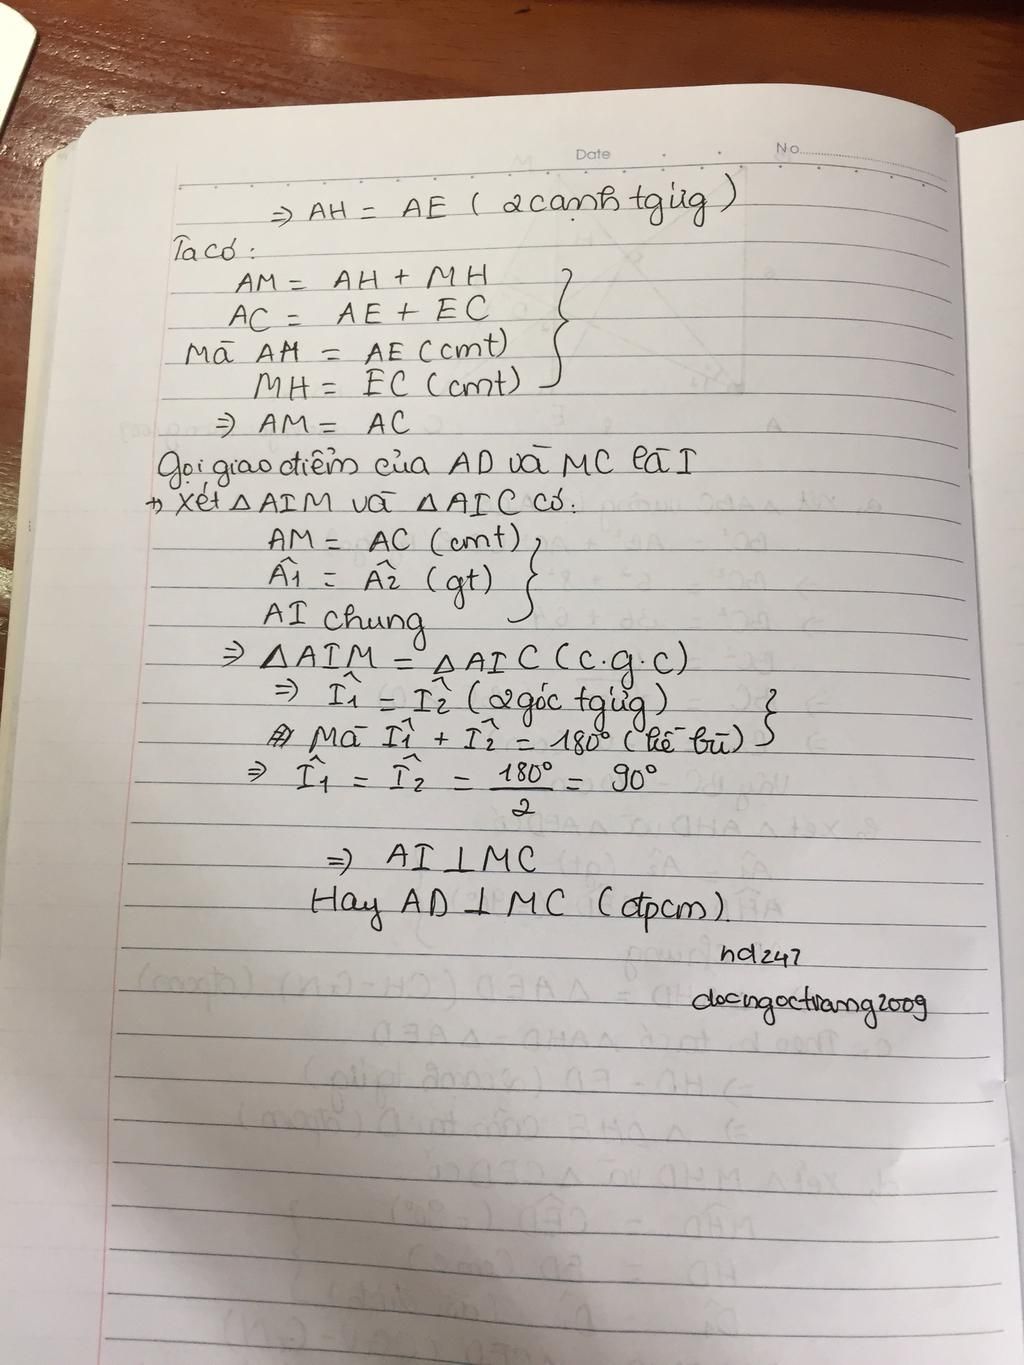 Date No
⇒ AH = AE ( 2 cạnh tgứg )
Ta có :
AM = AH + MH
AC = AE + EC
Mà AH = AE (cmt)
MH = EC (cmt)
⇒ AM = AC
Gọi giao điểm của AD và MC là I
→ Xét △AIM và △AIC có:
AM = AC (cmt)
Â1 = Â2 (gt)
AI chung
⇒ △AIM = △AIC (c.g.c)
⇒ Î1 = Î2 (2 góc tgứg)
Mà Î1 + Î2 = 180° (kề bù)
⇒ Î1 = Î2 = 180°/2 = 90°
⇒ AI ⊥ MC
Hay AD ⊥ MC (đpcm).
hd247
docngoctrang2009